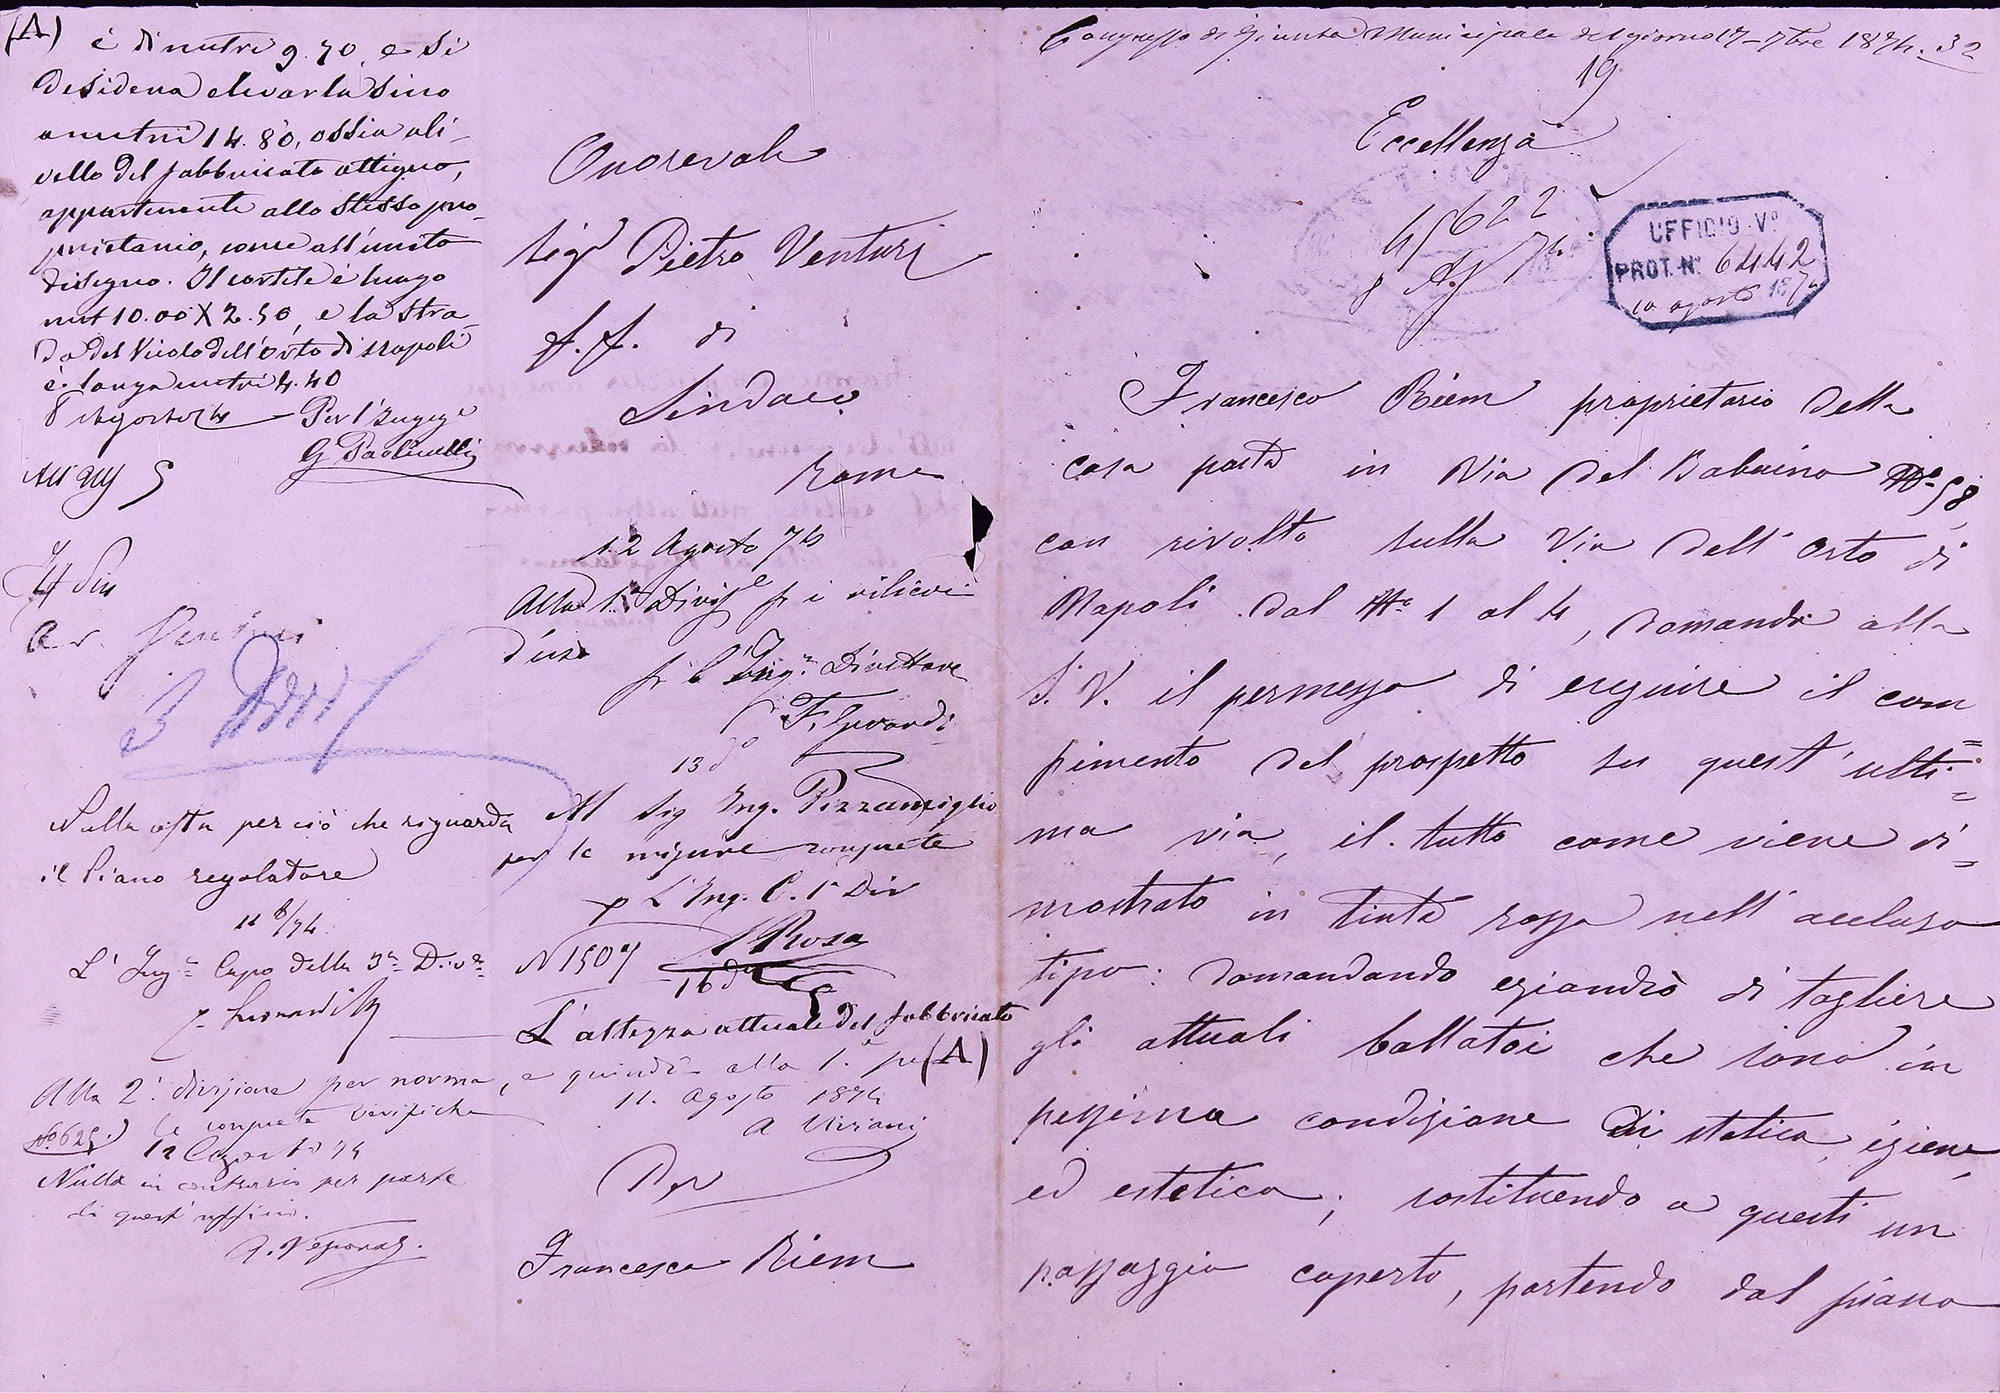 (A)
è di metri 9.70, e si
desidera elevarla sino
a metri 14.80, ossia a li-
vello del fabbricato attiguo,
appartenente allo stesso pro-
prietario, come all'unito
disegno. Il cortile è lungo
met 10.00 X 2.50, e la stra-
da del Vicolo dell'Orto di Napoli
è larga metri 4.40
8 Agosto 74 Per l'Ingeg.e
G Paolinelli
Nulla osta per ciò che riguarda
il Piano regolatore
11 8/74
L' Ing.e Capo della 3.a Div.ne
Alla 2.a divisione per norma, e quindi alla 1.a per
No 625.) le consuete verifiche
11. Agosto 1874
A Viviani
12 Agosto 74
Nulla in contrario per parte
di quest' ufficio.
Onorevole
Sig.r Pietro Venturi
f.f. di
Sindaco
Roma
12 Agosto 74
Alla 1.a Divis.e p i rilievi
d'uso
p l' Ing.re Direttore
13 d.o
Al Sig Ing. Pizzamiglio
per le misure consuete
p L'Ing. C. 1.a Div
Rosa
N 1507
16 d.o
L'altezza attuale del fabbricato
(A)
Per
Francesco Riem
Congresso di Giunta Municipale del giorno 17 - 7bre 1874. 32
19
Eccellenza
45622
8 Ag 74
UFFICIO V.o
PROT. N.o 6442
10 agosto 1874
Francesco Riem proprietario della
casa posta in Via del Babuino N.o 58,
con rivolta sulla Via dell' Orto di
Napoli dal N.o 1 al 4, domanda alla
S. V. il permesso di eseguire il com=
pimento del prospetto su quest' ulti=
ma via, il tutto come viene di=
mostrato in tinta rossa nell' accluso
tipo: domandando eziandio di togliere
gli attuali ballatoi che sono in
pessima condizione di statica, igiene,
ed estetica; sostituendo a questi un
passaggio coperto, partendo dal piano